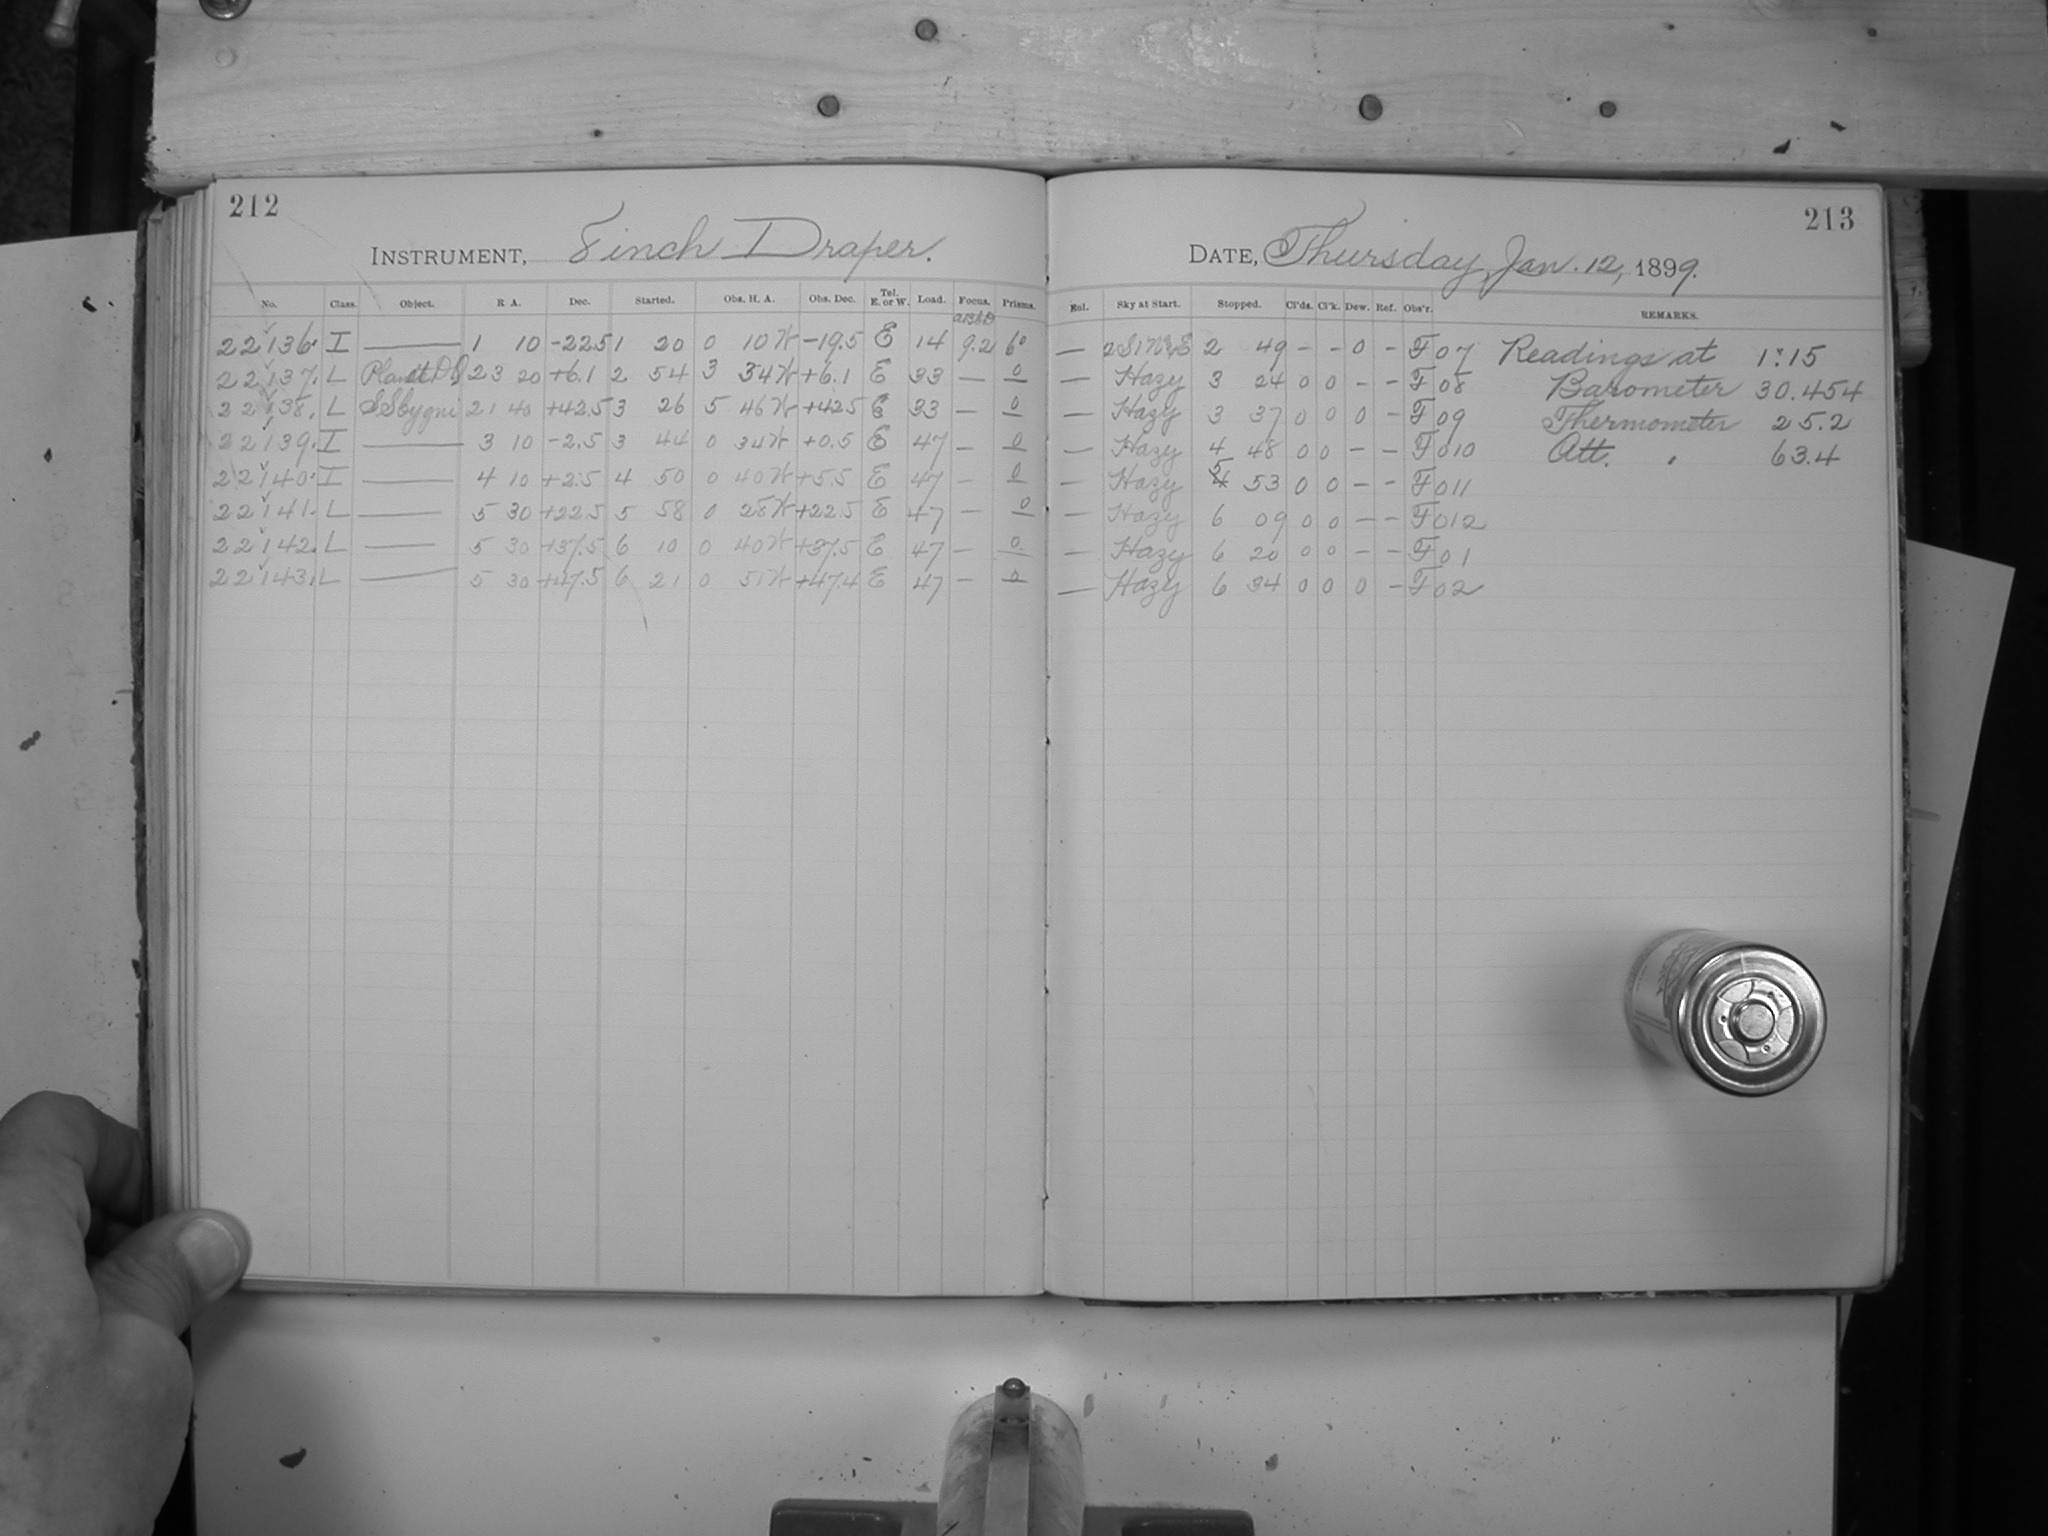 212
INSTRUMENT, 8 inch Draper.
No. Class. Object. R A. Dec. Started. Obs. H. A. Obs. Dec. Tel. E. or W. Load. Focus. Prisms.
22136. I — 1 10 -22.5 1 20 0 10 W -19.5 E 14 9.2 6°
22137. L Planet 23 20 +6.1 2 54 3 34 W +6.1 E 33 — 0
22138. L SS Cygni 21 40 +42.5 3 26 5 46 W +42.5 E 33 — 0
22139. I — 3 10 -2.5 3 44 0 34 W +0.5 E 47 — 0
22140. I — 4 10 +2.5 4 50 0 40 W +5.5 E 47 — 0
22141. L — 5 30 +22.5 5 58 0 28 W +22.5 E 47 — 0
22142. L — 5 30 +37.5 6 10 0 40 W +37.5 E 47 — 0
22143. L — 5 30 +47.5 6 21 0 51 W +47.4 E 47 — 0
213
DATE, Thursday, Jan. 12, 1899.
Enl. Sky at Start. Stopped. Cl'ds. Cl'k. Dew. Ref. Obs'r. REMARKS.
— 2 49 - - 0 - F 07 Readings at 1:15
— Hazy 3 24 0 0 - - F 08 Barometer 30.454
— Hazy 3 37 0 0 0 - F 09 Thermometer 25.2
— Hazy 4 48 0 0 - - F 010 Att. " 63.4
— Hazy 5 53 0 0 - - F 011
— Hazy 6 09 0 0 - - F 012
— Hazy 6 20 0 0 - - F 01
— Hazy 6 34 0 0 0 - F 02